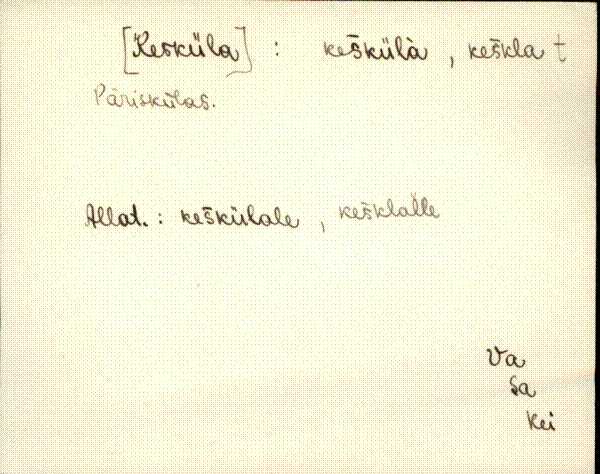 [Kesküla] : kešküla̓, keškla t
Päriskülas.
Allat. : keškülale, kešklalle
Va
Sa
Kei